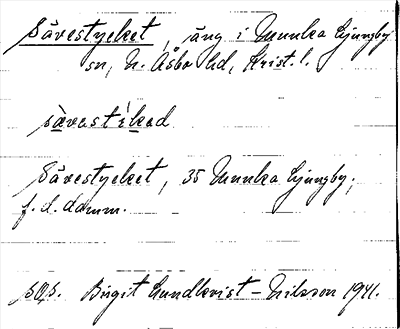 Sävestycket, äng i Munka Ljungby
sn, N. Åsbo hd, Krist. l.
sävestikad
Sävestycket, 35 Munka Ljungby,
f. d. damm.
Birgit Lundkvist-Nilsson 1941.